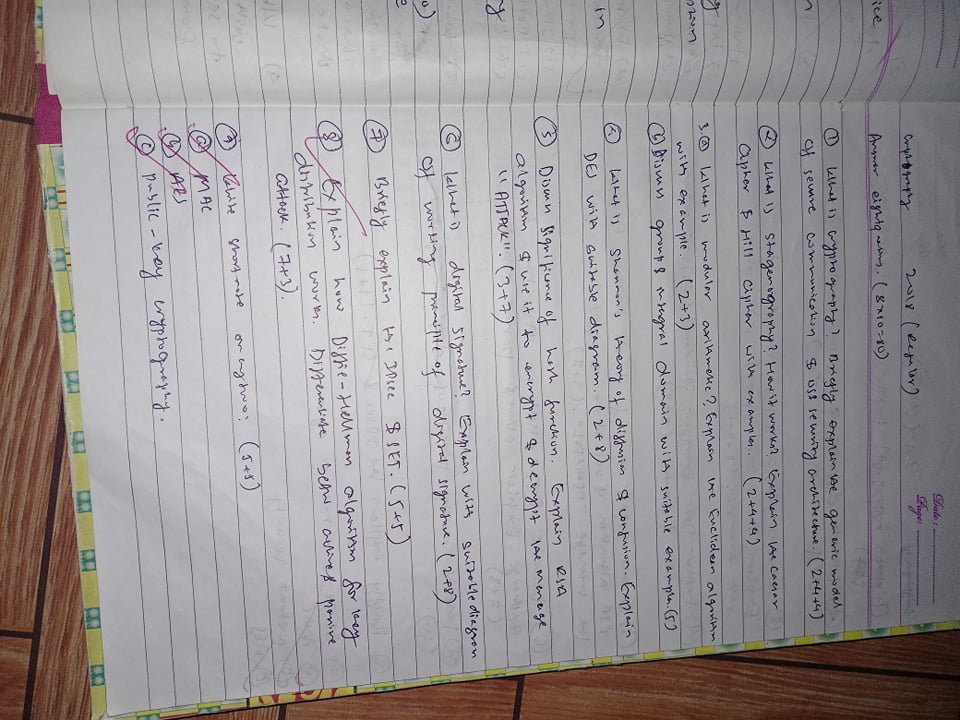 Date:
Page:
Cryptography 2018 (Regular)
Answer eight questions. (8x10=80)
① What is cryptography? Briefly explain the generic model
of secure communication & OSI security architecture. (2+4+4)
② What is stagenography? How it works? Explain the Caesar
Cipher & Hill Cipher with examples. (2+4+4)
3.ⓐ What is modular arithmetic? Explain the Euclidean algorithm
with example. (2+3)
ⓑ Discuss group & integral domain with suitable example. (5)
④ What is Shannon's theory of diffusion & confusion. Explain
DES with suitable diagram. (2+8)
⑤ Discuss significance of hash function. Explain RSA
algorithm & use it to encrypt & decrypt the message
"ATTACK". (3+7)
⑥ What is digital signature? Explain with suitable diagram
of working principle of digital signature. (2+8)
⑦ Briefly explain the IPsec & SET. (5+5)
⑧ Explain how Diffie-Hellman algorithm for key
distribution works. Differentiate betw active & passive
attack. (7+3).
⑨ Write short note on any two: (5+5)
ⓐ MAC
ⓑ AES
ⓒ Public-key cryptography.
ice
n
g
ption
in
y
o)
e